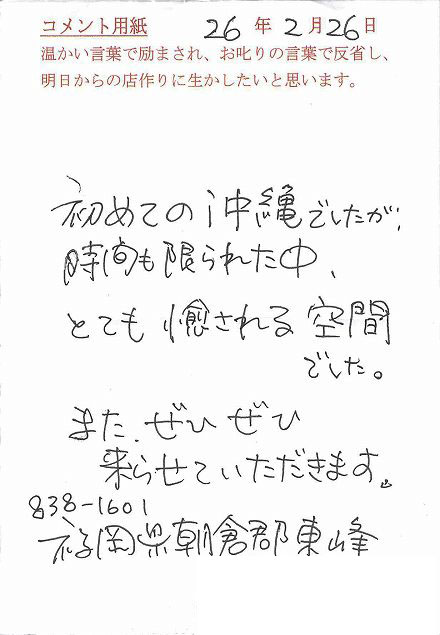 コメント用紙 26年2月26日
温かい言葉で励まされ、お叱りの言葉で反省し、
明日からの店作りに生かしたいと思います。
初めての沖縄でしたが、
時間も限られた中、
とても癒される空間
でした。
また、ぜひぜひ
来らせていただきます。
838-1601
福岡県朝倉郡東峰